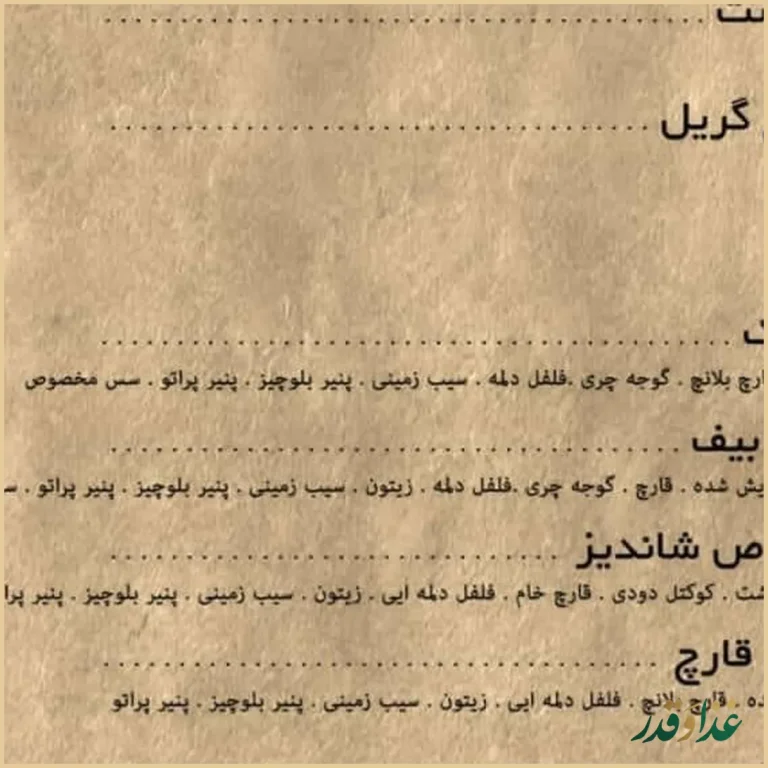 گریل
بلانچ . گوجه چری .فلفل دلمه . سیب زمینی . پنیر بلوچیز . پنیر پراتو . سس مخصوص
بیف
شده . قارچ . گوجه چری .فلفل دلمه . زیتون . سیب زمینی . پنیر بلوچیز . پنیر پراتو .
شاندیز
کوکتل دودی . قارچ خام . فلفل دلمه ایی . زیتون . سیب زمینی . پنیر بلوچیز . پنیر
قارچ
قارچ بلانچ . فلفل دلمه ایی . زیتون . سیب زمینی . پنیر بلوچیز . پنیر پراتو
غذا و قدر